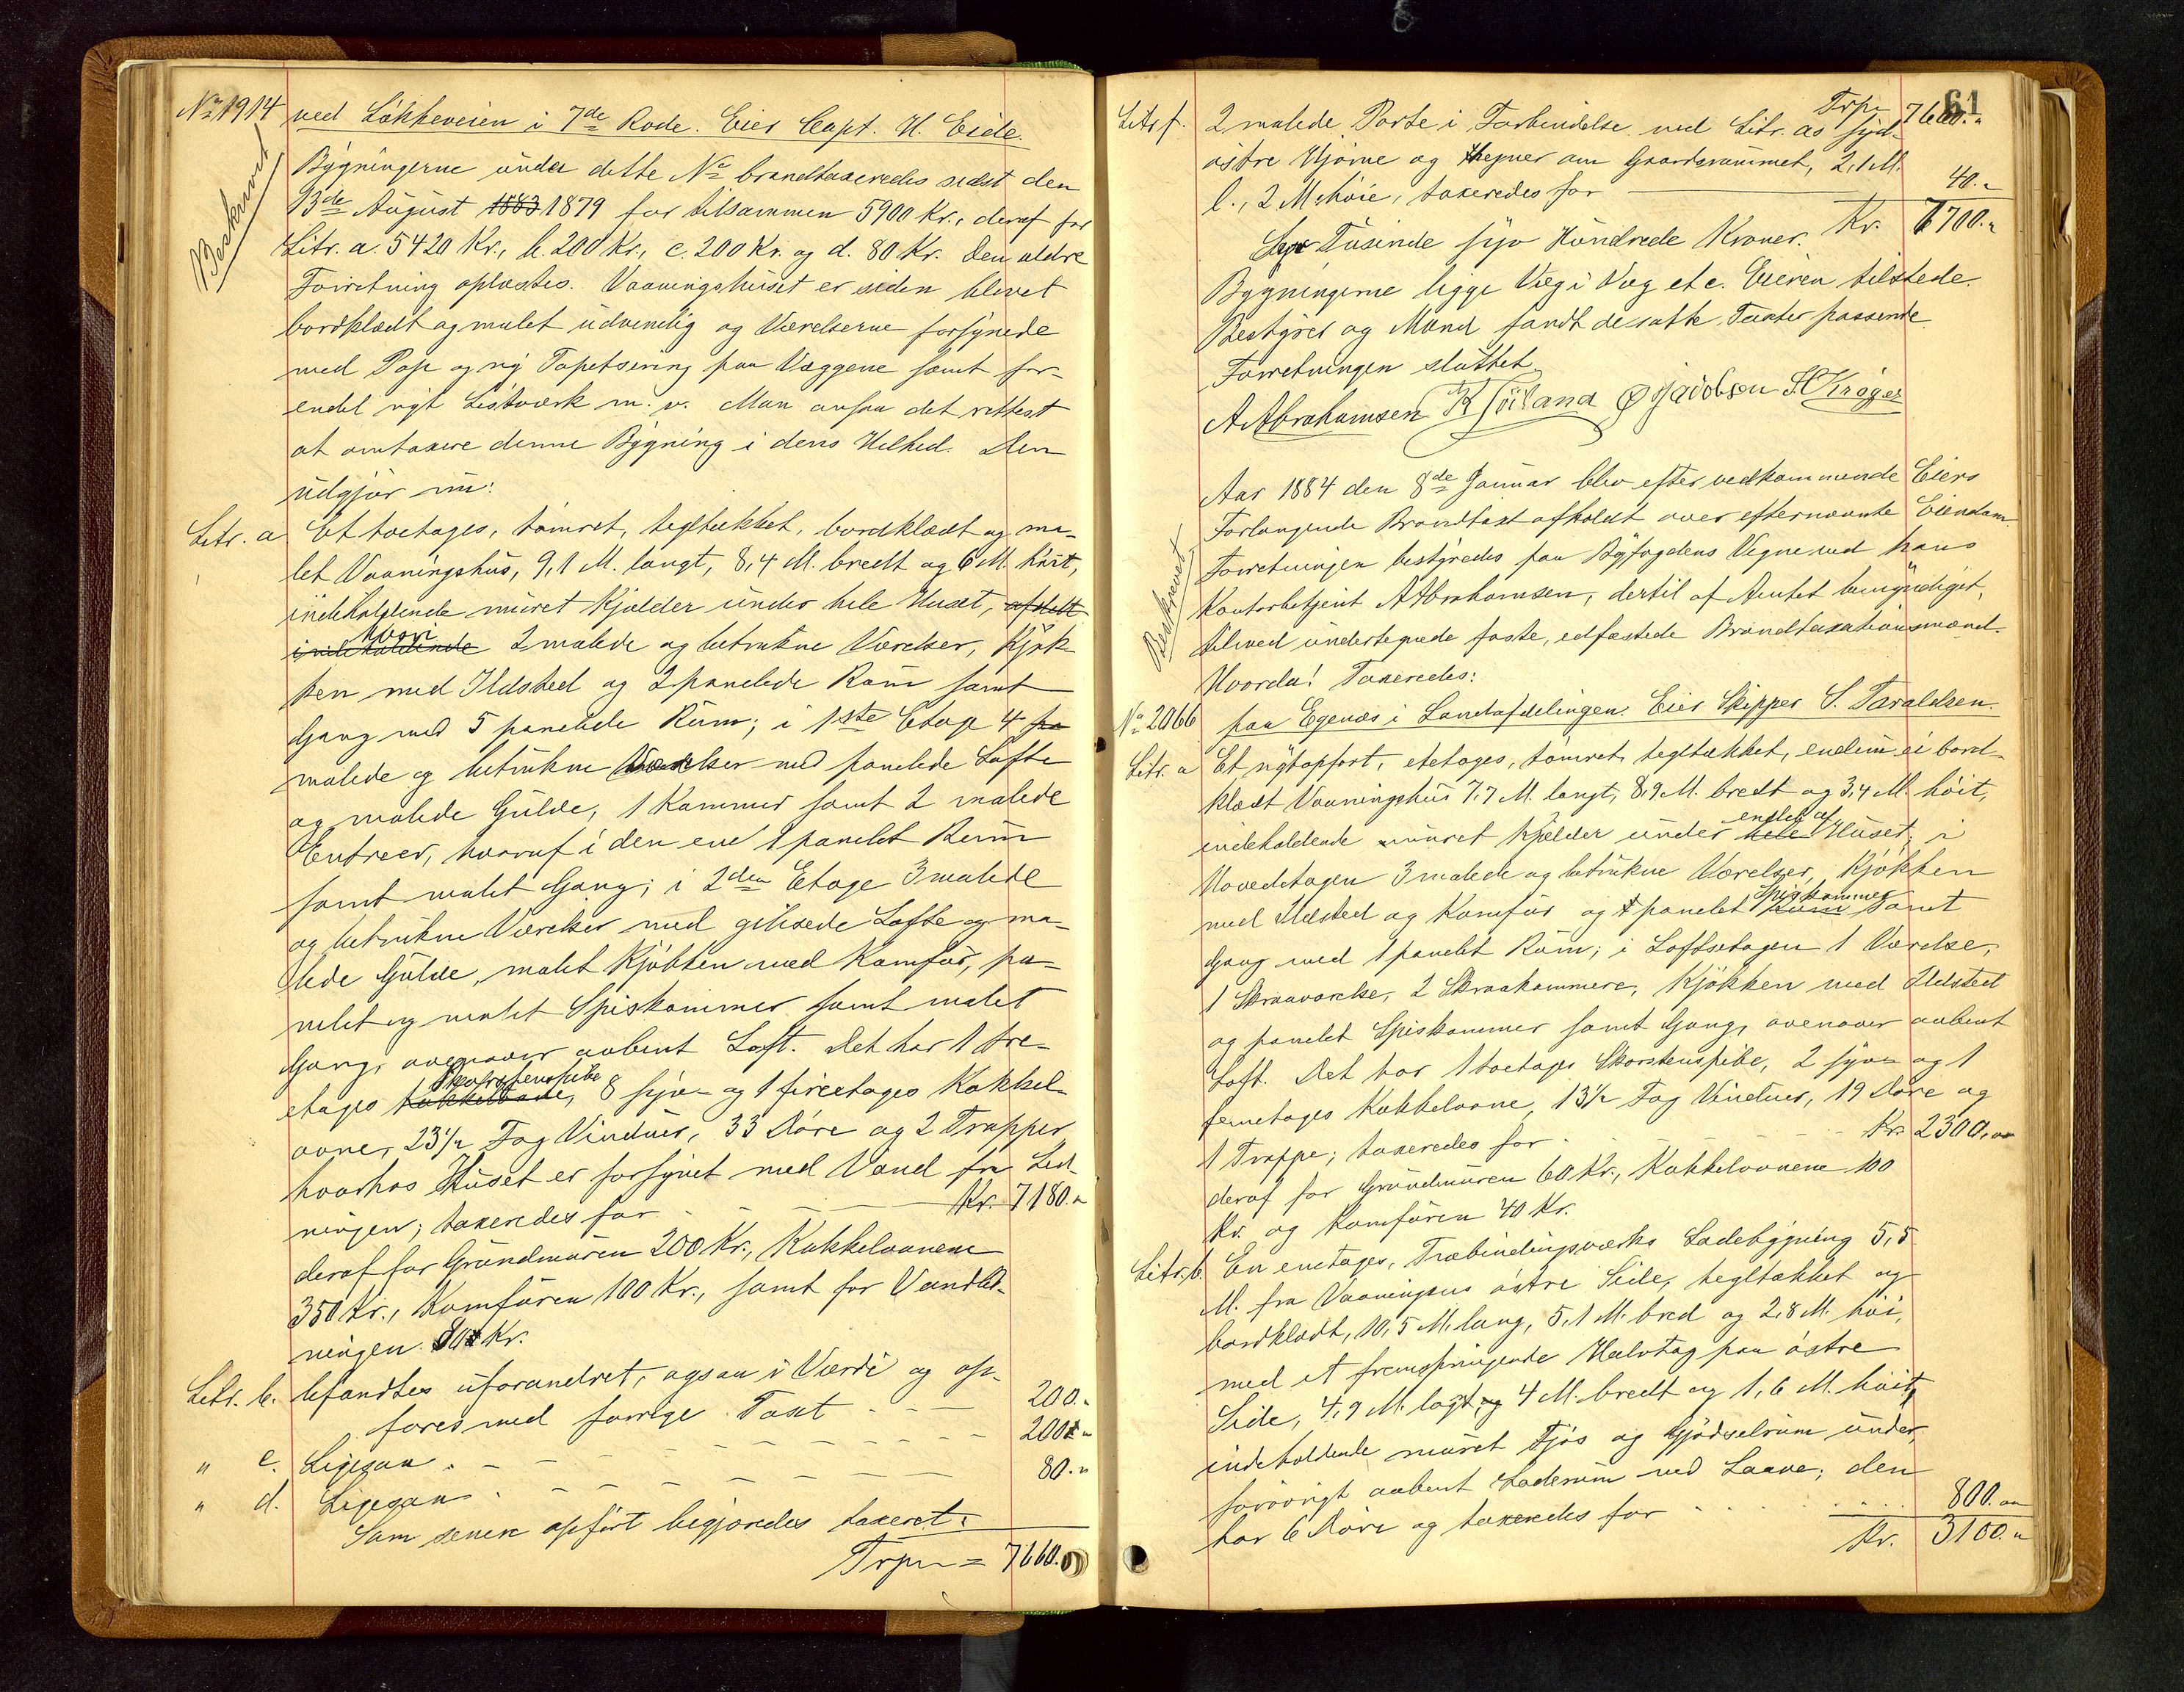 No 1914 ved Løkkeveien i 7de Rode. Eier Capt. H. Eide.
Beskrevet
Bygningerne under dette No brandtaxeredes sidst den
13de August 1883 1879 for tilsammen 5900 Kr., deraf for
Litr. a. 5420 Kr., b. 200 Kr., c. 200 Kr. og d. 80 Kr. Den ældre
Forretning oplæstes. Vaaningshuset er siden blevet
bordklædt og malet udvendig og Værelserne forsynede
med Pap og ny Tapetsering paa Væggene samt for-
endel nyt Listværk m. v. Man ansaa det rettest
at omtaxere denne Bygning i dens Helhed. Den
udgjør nu:
Litr. a Et toetages, tømret, tegltækket, bordklædt og ma-
let Vaaningshus, 9,1 M. langt, 8,4 M. bredt og 6 M. høit,
indeholdende muret Kjælder under hele Huset, afdelt
hvori
indeholdende 2 malede og betrukne Værelser, Kjøk-
ken med Ildsted og 2 panelede Rum samt
Gang med 5 panelede Rum; i 1ste Etage 4 pa
malede og betrukne Værelser med panelede Lofte
og malede Gulve, 1 Kammer samt 2 malede
Entreer, hvoraf i den ene 1 panelet Rum
samt malet Gang; i 2den Etage 3 malede
og betrukne Værelser med gibsede Lofte og ma-
lede Gulve, malet Kjøkken med Komfur, pa-
nelet og malet Spiskammer samt malet
Gang, ovenover aabent Loft. Det har 1 tre-
Skorstenspibe
etages Kakkelovne, 8 syv- og 1 fireetages Kakkel-
ovne, 23½ Fag Vinduer, 33 Døre og 2 Trapper
hvorhos Huset er forsynet med Vand fra Led-
ningen; taxeredes for Kr. 7180.„
deraf for Grundmuren 200 Kr., Kakkelovnene
350 Kr., Komfuren 100 Kr., samt for Vandled-
ningen 80 Kr.
Litr. b. befandtes uforandret, ogsaa i Værdi og op-
føres med forrige Taxt 200.„
„ c. Ligesaa 200 „
„ d. Ligesaa 80.„
Som senere opført begjæredes taxeret:
Trpr = 7660.00
61
Trpr 7660.„
Litr. f. 2 malede Porte i Forbindelse med Litr. as syd-
østre Hjørne og Hegner om Gaardsrummet, 2,1 M.
l., 2 M. høie, taxeredes for 40.„
Kr. 7700.„
Syv Tusinde syv Hundrede Kroner.
Bygningerne ligge Væg i Væg etc. Eieren tilstede.
Bestyrer og Mænd fandt de satte Taxter passende.
Forretningen sluttet.
A. Abrahamsen K Joiland O Jacobsen S. Krøger
Aar 1884 den 8de Januar blev efter vedkommende Eiers
Forlangende Brandtaxt afholdt over efternævnte Eiendom.
Beskrevet
Forretningen bestyredes paa Byfogdens Vegne ved hans
Kontorbetjent A Abrahamsen, dertil af Amtet bemyndiget,
tilmed undertegnede faste, edfæstede Brandtaxationsmænd.
Hvorda! Taxeredes:
No 2066 paa Egenæs i Landafdelingen. Eier Skipper S. Taraldsen.
Litr. a Et nyt opført, etetages, tømret, tegltækket, endnu ei bord-
klædt Vaaningshus 7,7 M. langt, 8,9 M. bredt og 3,4 M. høit,
endel af
indeholdende muret Kjælder under hele Huset; i
Hovedetagen 3 malede og betrukne Værelser, Kjøkken
Spiskammer
med Ildsted og Komfur og panelet Rum samt
Gang med 1 panelet Rum; i Loftsetagen 1 Værelse,
1 Skraaværelse, 2 Skraakammere, Kjøkken med Ildsted
og panelet Spiskammer samt Gang, ovenover aabent
Loft. Det har 1 toetages Skorstenspibe, 2 syv- og 1
femetages Kakkelovne, 13½ Fag Vinduer, 19 Døre og
1 Trappe; taxeredes for Kr. 2300.„
deraf for Grundmuren 60 Kr., Kakkelovnene 100
Kr. og Komfuren 40 Kr.
Litr. b. En enetages, Træbindingsværks Ladebygning 5,5
M. fra Vaaningens østre Side, tegltækket og
bordklædt, 10,5 M. lang, 5,1 M. bred og 2,8 M. høi,
med et fremspringende Halvtag paa østre
Side, 4,9 M. lagt, og 4 M. bredt og 1,6 M. høit,
indeholdende muret Fjøs og Gjødselrum under,
forøvrigt aabent Laderum med Laave; den
har 6 Døre og taxeredes for 800.„
Kr. 3100.„